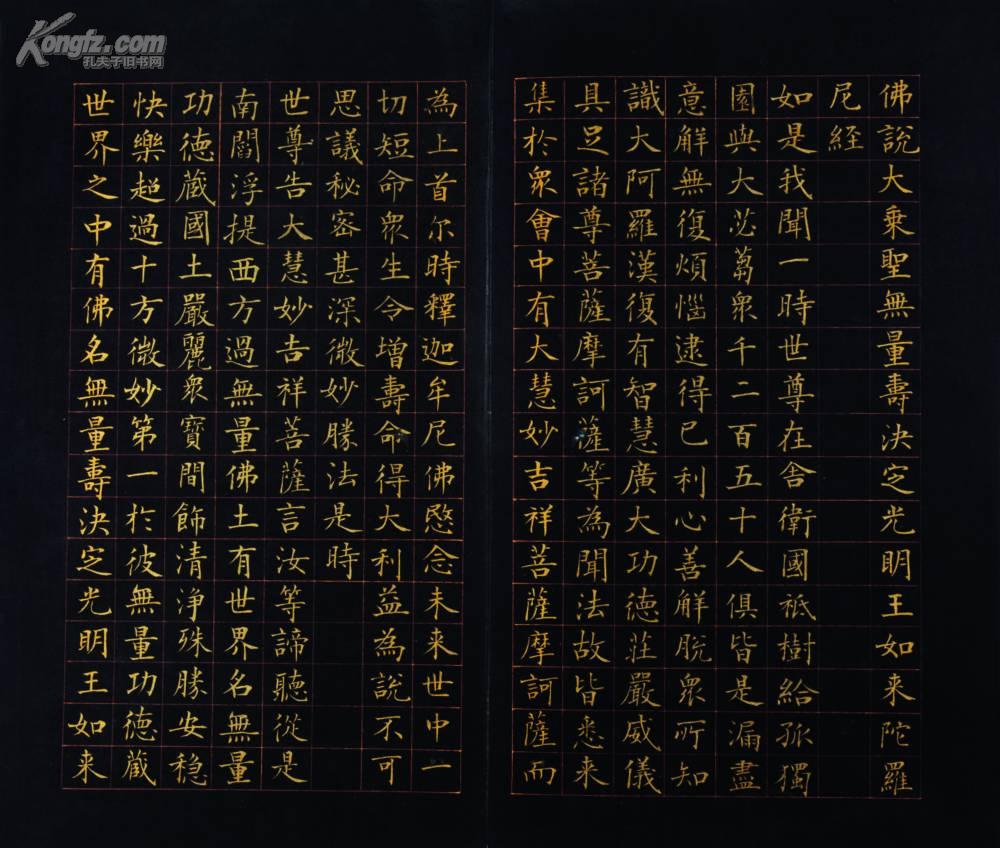 Kongfz.com
孔夫子旧书网
佛說大乘聖無量壽決定光明王如来陀羅
尼經
如是我聞一時世尊在舍衛國祇樹給孤獨
園與大苾蒭衆千二百五十人俱皆是漏盡
意解無復煩惱逮得已利心善解脫衆所知
識大阿羅漢復有智慧廣大功德莊嚴威儀
具足諸尊菩薩摩訶薩等為聞法故皆悉来
集於衆會中有大慧妙吉祥菩薩摩訶薩而
為上首尔時釋迦牟尼佛愍念未来世中一
切短命衆生令增壽命得大利益為說不可
思議秘密甚深微妙勝法是時
世尊告大慧妙吉祥菩薩言汝等諦聽從是
南閻浮提西方過無量佛土有世界名無量
功德藏國土嚴麗衆寶間飾清淨殊勝安稳
快樂超過十方微妙第一於彼無量功德藏
世界之中有佛名無量壽決定光明王如来